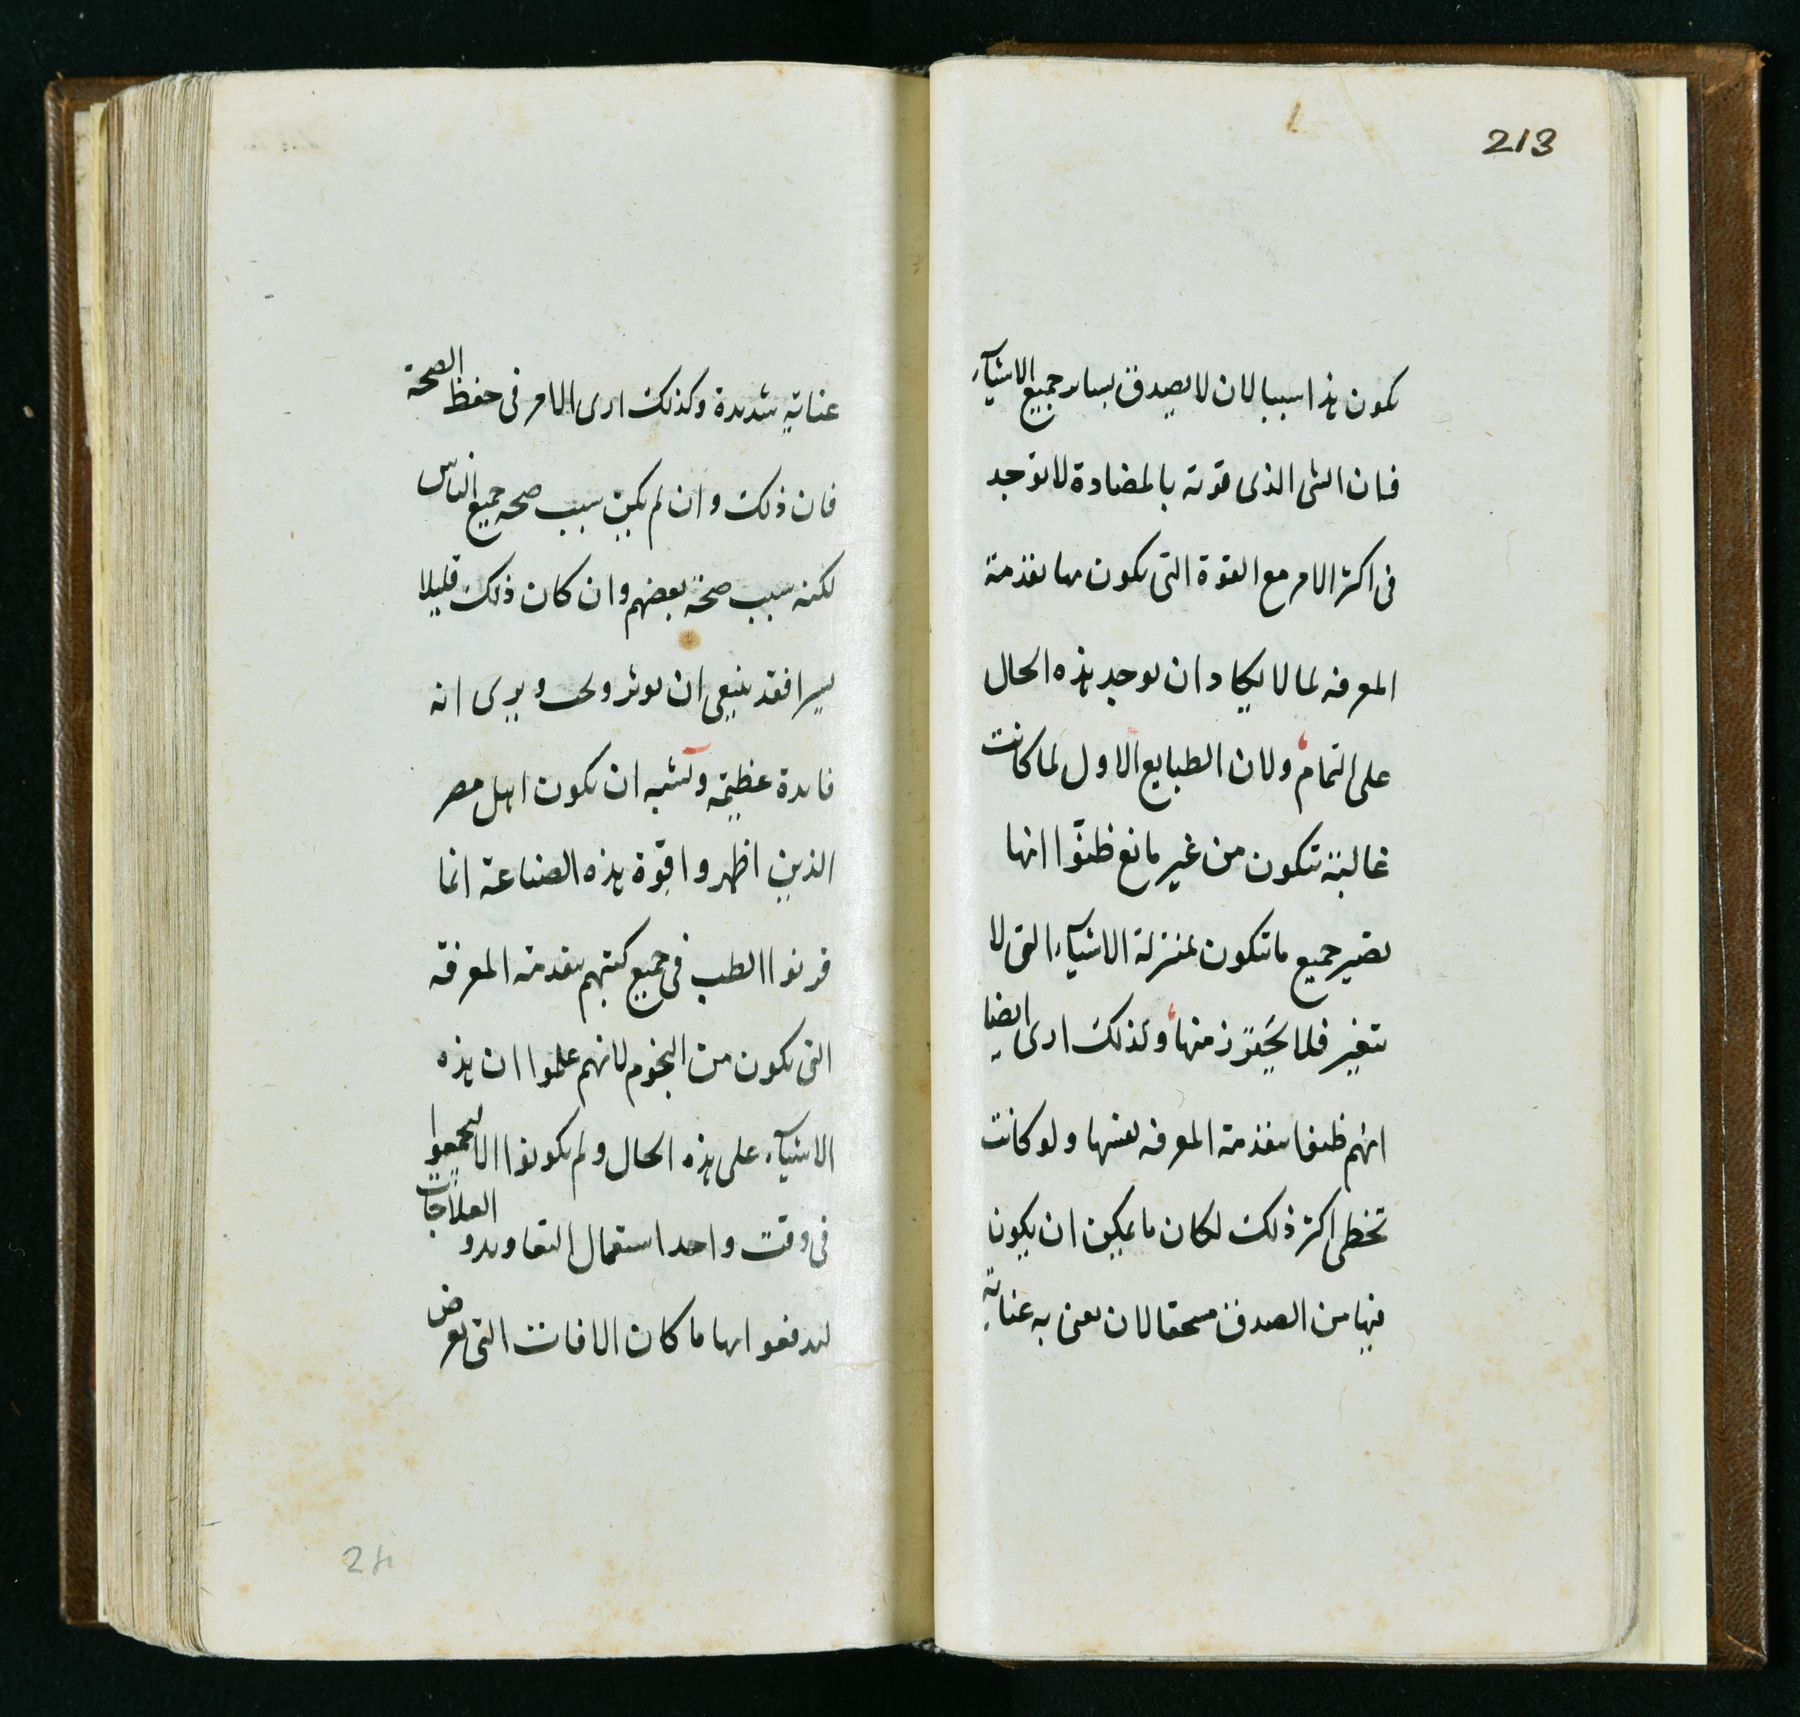 213
يكون هذا سببا لان لا يصدق بسائر جميع الاشيآء
فان الشى الذى قوته بالمضادة لا توجد
فى اكثر الامر مع القوة التى يكون بها تقدمة
المعرفه لما لا يكاد ان يوجد هذه الحال
على التمام ولان الطبايع الاول لما كانت
غالبة تتكون من غير مانع ظنوا انها
تصير جميع ما تتكون بمنزلة الاشيآء التى لا
تتغير فلا يحترز منها ولذلك ارى ايضا
انهم ظنوا بتقدمة المعرفه بعينها ولو كانت
تخطى اكثر ذلك لكان ما يمكن ان يكونا
فيها من الصدق مستحقا لان يعنى به عناية
عناية شديدة وكذلك ارى الامر فى حفظ الصحة
فان ذلك وان لم يكن سبب صحه جميع الناس
لكنه سبب صحة بعضهم وان كان ذلك قليلا
يسيرا فقد ينبغى ان يوثر ويرى انه
فايدة عظيمه ويشبه ان يكون اهل مصر
الذين اظهروا قوة هذه الصناعة انما
قرنوا الطب فى جميع كتبهم بتقدمة المعرفة
التى يكون من النجوم لانهم علموا ان هذه
الاشيآء على هذه الحال ولم يكونوا الا ليجمعوا
فى وقت واحد استعمال التعاويذ و العلاجات
ليدفعوا بها ما كان الافات التى تعرض